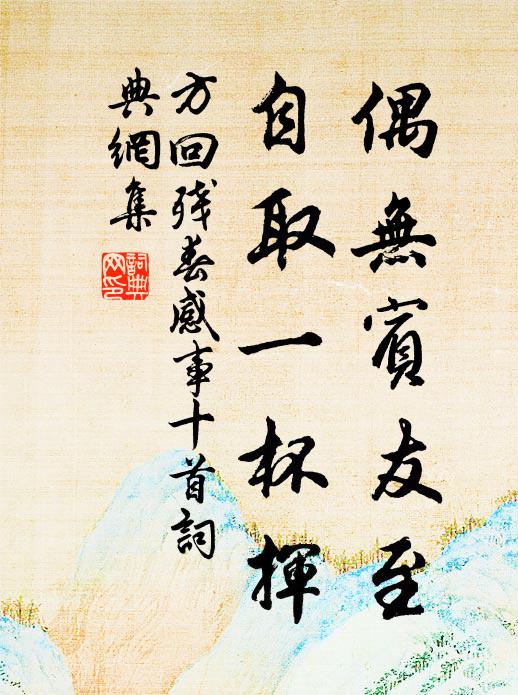 偶無賓友至
自取一杯揮
方回殘春感事十首詞
典網集
詞典
网印